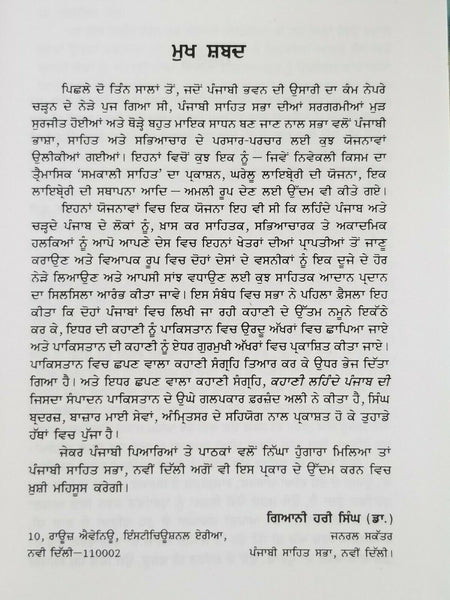 ਮੁਖ ਸ਼ਬਦ
ਪਿਛਲੇ ਦੋ ਤਿੰਨ ਸਾਲਾਂ ਤੋਂ, ਜਦੋਂ ਪੰਜਾਬੀ ਭਵਨ ਦੀ ਉਸਾਰੀ ਦਾ ਕੰਮ ਨੇਪਰੇ
ਚੜ੍ਹਨ ਦੇ ਨੇੜੇ ਪੁਜ ਗਿਆ ਸੀ, ਪੰਜਾਬੀ ਸਾਹਿਤ ਸਭਾ ਦੀਆਂ ਸਰਗਰਮੀਆਂ ਮੁੜ
ਸੁਰਜੀਤ ਹੋਈਆਂ ਅਤੇ ਥੋੜ੍ਹੇ ਬਹੁਤ ਮਾਇਕ ਸਾਧਨ ਬਣ ਜਾਣ ਨਾਲ ਸਭਾ ਵਲੋਂ ਪੰਜਾਬੀ
ਭਾਸ਼ਾ, ਸਾਹਿਤ ਅਤੇ ਸਭਿਆਚਾਰ ਦੇ ਪਰਸਾਰ-ਪਰਚਾਰ ਲਈ ਕੁਝ ਯੋਜਨਾਵਾਂ
ਉਲੀਕੀਆਂ ਗਈਆਂ। ਇਹਨਾਂ ਵਿਚੋਂ ਕੁਝ ਇਕ ਨੂੰ – ਜਿਵੇਂ ਨਿਵੇਕਲੀ ਕਿਸਮ ਦਾ
ਤ੍ਰੈਮਾਸਿਕ 'ਸਮਕਾਲੀ ਸਾਹਿਤ' ਦਾ ਪ੍ਰਕਾਸ਼ਨ, ਘਰੇਲੂ ਲਾਇਬ੍ਰੇਰੀ ਦੀ ਯੋਜਨਾ, ਇਕ
ਲਾਇਬ੍ਰੇਰੀ ਦੀ ਸਥਾਪਨਾ ਆਦਿ – ਅਮਲੀ ਰੂਪ ਦੇਣ ਲਈ ਉੱਦਮ ਵੀ ਕੀਤੇ ਗਏ।
ਇਹਨਾਂ ਯੋਜਨਾਵਾਂ ਵਿਚ ਇਕ ਯੋਜਨਾ ਇਹ ਵੀ ਸੀ ਕਿ ਲਹਿੰਦੇ ਪੰਜਾਬ ਅਤੇ
ਚੜ੍ਹਦੇ ਪੰਜਾਬ ਦੇ ਲੋਕਾਂ ਨੂੰ, ਖ਼ਾਸ ਕਰ ਸਾਹਿਤਕ, ਸਭਿਆਚਾਰਕ ਤੇ ਅਕਾਦਮਿਕ
ਹਲਕਿਆਂ ਨੂੰ ਆਪੋ ਆਪਣੇ ਦੇਸ ਵਿਚ ਇਹਨਾਂ ਖੇਤਰਾਂ ਦੀਆਂ ਪ੍ਰਾਪਤੀਆਂ ਤੋਂ ਜਾਣੂ
ਕਰਾਉਣ ਅਤੇ ਵਿਆਪਕ ਰੂਪ ਵਿਚ ਦੋਹਾਂ ਦੇਸਾਂ ਦੇ ਵਸਨੀਕਾਂ ਨੂੰ ਇਕ ਦੂਜੇ ਦੇ ਹੋਰ
ਨੇੜੇ ਲਿਆਉਣ ਅਤੇ ਆਪਸੀ ਸਾਂਝ ਵਧਾਉਣ ਲਈ ਕੁਝ ਸਾਹਿਤਕ ਆਦਾਨ ਪ੍ਰਦਾਨ
ਦਾ ਸਿਲਸਿਲਾ ਆਰੰਭ ਕੀਤਾ ਜਾਵੇ। ਇਸ ਸੰਬੰਧ ਵਿਚ ਸਭਾ ਨੇ ਪਹਿਲਾ ਫ਼ੈਸਲਾ ਇਹ
ਕੀਤਾ ਕਿ ਦੋਹਾਂ ਪੰਜਾਬਾਂ ਵਿਚ ਲਿਖੀ ਜਾ ਰਹੀ ਕਹਾਣੀ ਦੇ ਉੱਤਮ ਨਮੂਨੇ ਇਕੱਠੇ
ਕਰ ਕੇ, ਇਧਰ ਦੀ ਕਹਾਣੀ ਨੂੰ ਪਾਕਿਸਤਾਨ ਵਿਚ ਉਰਦੂ ਅੱਖਰਾਂ ਵਿਚ ਛਾਪਿਆ ਜਾਏ
ਅਤੇ ਪਾਕਿਸਤਾਨ ਦੀ ਕਹਾਣੀ ਨੂੰ ਏਧਰ ਗੁਰਮੁਖੀ ਅੱਖਰਾਂ ਵਿਚ ਪ੍ਰਕਾਸ਼ਿਤ ਕੀਤਾ ਜਾਏ।
ਪਾਕਿਸਤਾਨ ਵਿਚ ਛਪਣ ਵਾਲਾ ਕਹਾਣੀ ਸੰਗ੍ਰਹਿ ਤਿਆਰ ਕਰ ਕੇ ਉਧਰ ਭੇਜ ਦਿੱਤਾ
ਗਿਆ ਹੈ। ਅਤੇ ਇਧਰ ਛਪਣ ਵਾਲਾ ਕਹਾਣੀ ਸੰਗ੍ਰਹਿ, ਕਹਾਣੀ ਲਹਿੰਦੇ ਪੰਜਾਬ ਦੀ
ਜਿਸਦਾ ਸੰਪਾਦਨ ਪਾਕਿਸਤਾਨ ਦੇ ਉਘੇ ਗਲਪਕਾਰ ਫ਼ਰਜ਼ੰਦ ਅਲੀ ਨੇ ਕੀਤਾ ਹੈ, ਸਿੰਘ
ਬ੍ਰਦਰਜ਼, ਬਾਜ਼ਾਰ ਮਾਈ ਸੇਵਾਂ, ਅੰਮ੍ਰਿਤਸਰ ਦੇ ਸਹਿਯੋਗ ਨਾਲ ਪ੍ਰਕਾਸ਼ਤ ਹੋ ਕੇ ਤੁਹਾਡੇ
ਹੱਥਾਂ ਵਿਚ ਪੁੱਜਾ ਹੈ।
ਜੇਕਰ ਪੰਜਾਬੀ ਪਿਆਰਿਆਂ ਤੇ ਪਾਠਕਾਂ ਵਲੋਂ ਨਿੱਘਾ ਹੁੰਗਾਰਾ ਮਿਲਿਆ ਤਾਂ
ਪੰਜਾਬੀ ਸਾਹਿਤ ਸਭਾ, ਨਵੀਂ ਦਿੱਲੀ ਅਗੋਂ ਵੀ ਇਸ ਪ੍ਰਕਾਰ ਦੇ ਉੱਦਮ ਕਰਨ ਵਿਚ
ਖ਼ੁਸ਼ੀ ਮਹਿਸੂਸ ਕਰੇਗੀ।
ਗਿਆਨੀ ਹਰੀ ਸਿੰਘ (ਡਾ.)
10, ਰਾਊਜ਼ ਐਵੇਨਿਊ, ਇੰਸਟੀਚਿਊਸ਼ਨਲ ਏਰੀਆ, ਜਨਰਲ ਸਕੱਤਰ
ਨਵੀ ਦਿੱਲੀ–110002 ਪੰਜਾਬੀ ਸਾਹਿਤ ਸਭਾ, ਨਵੀਂ ਦਿੱਲੀ।